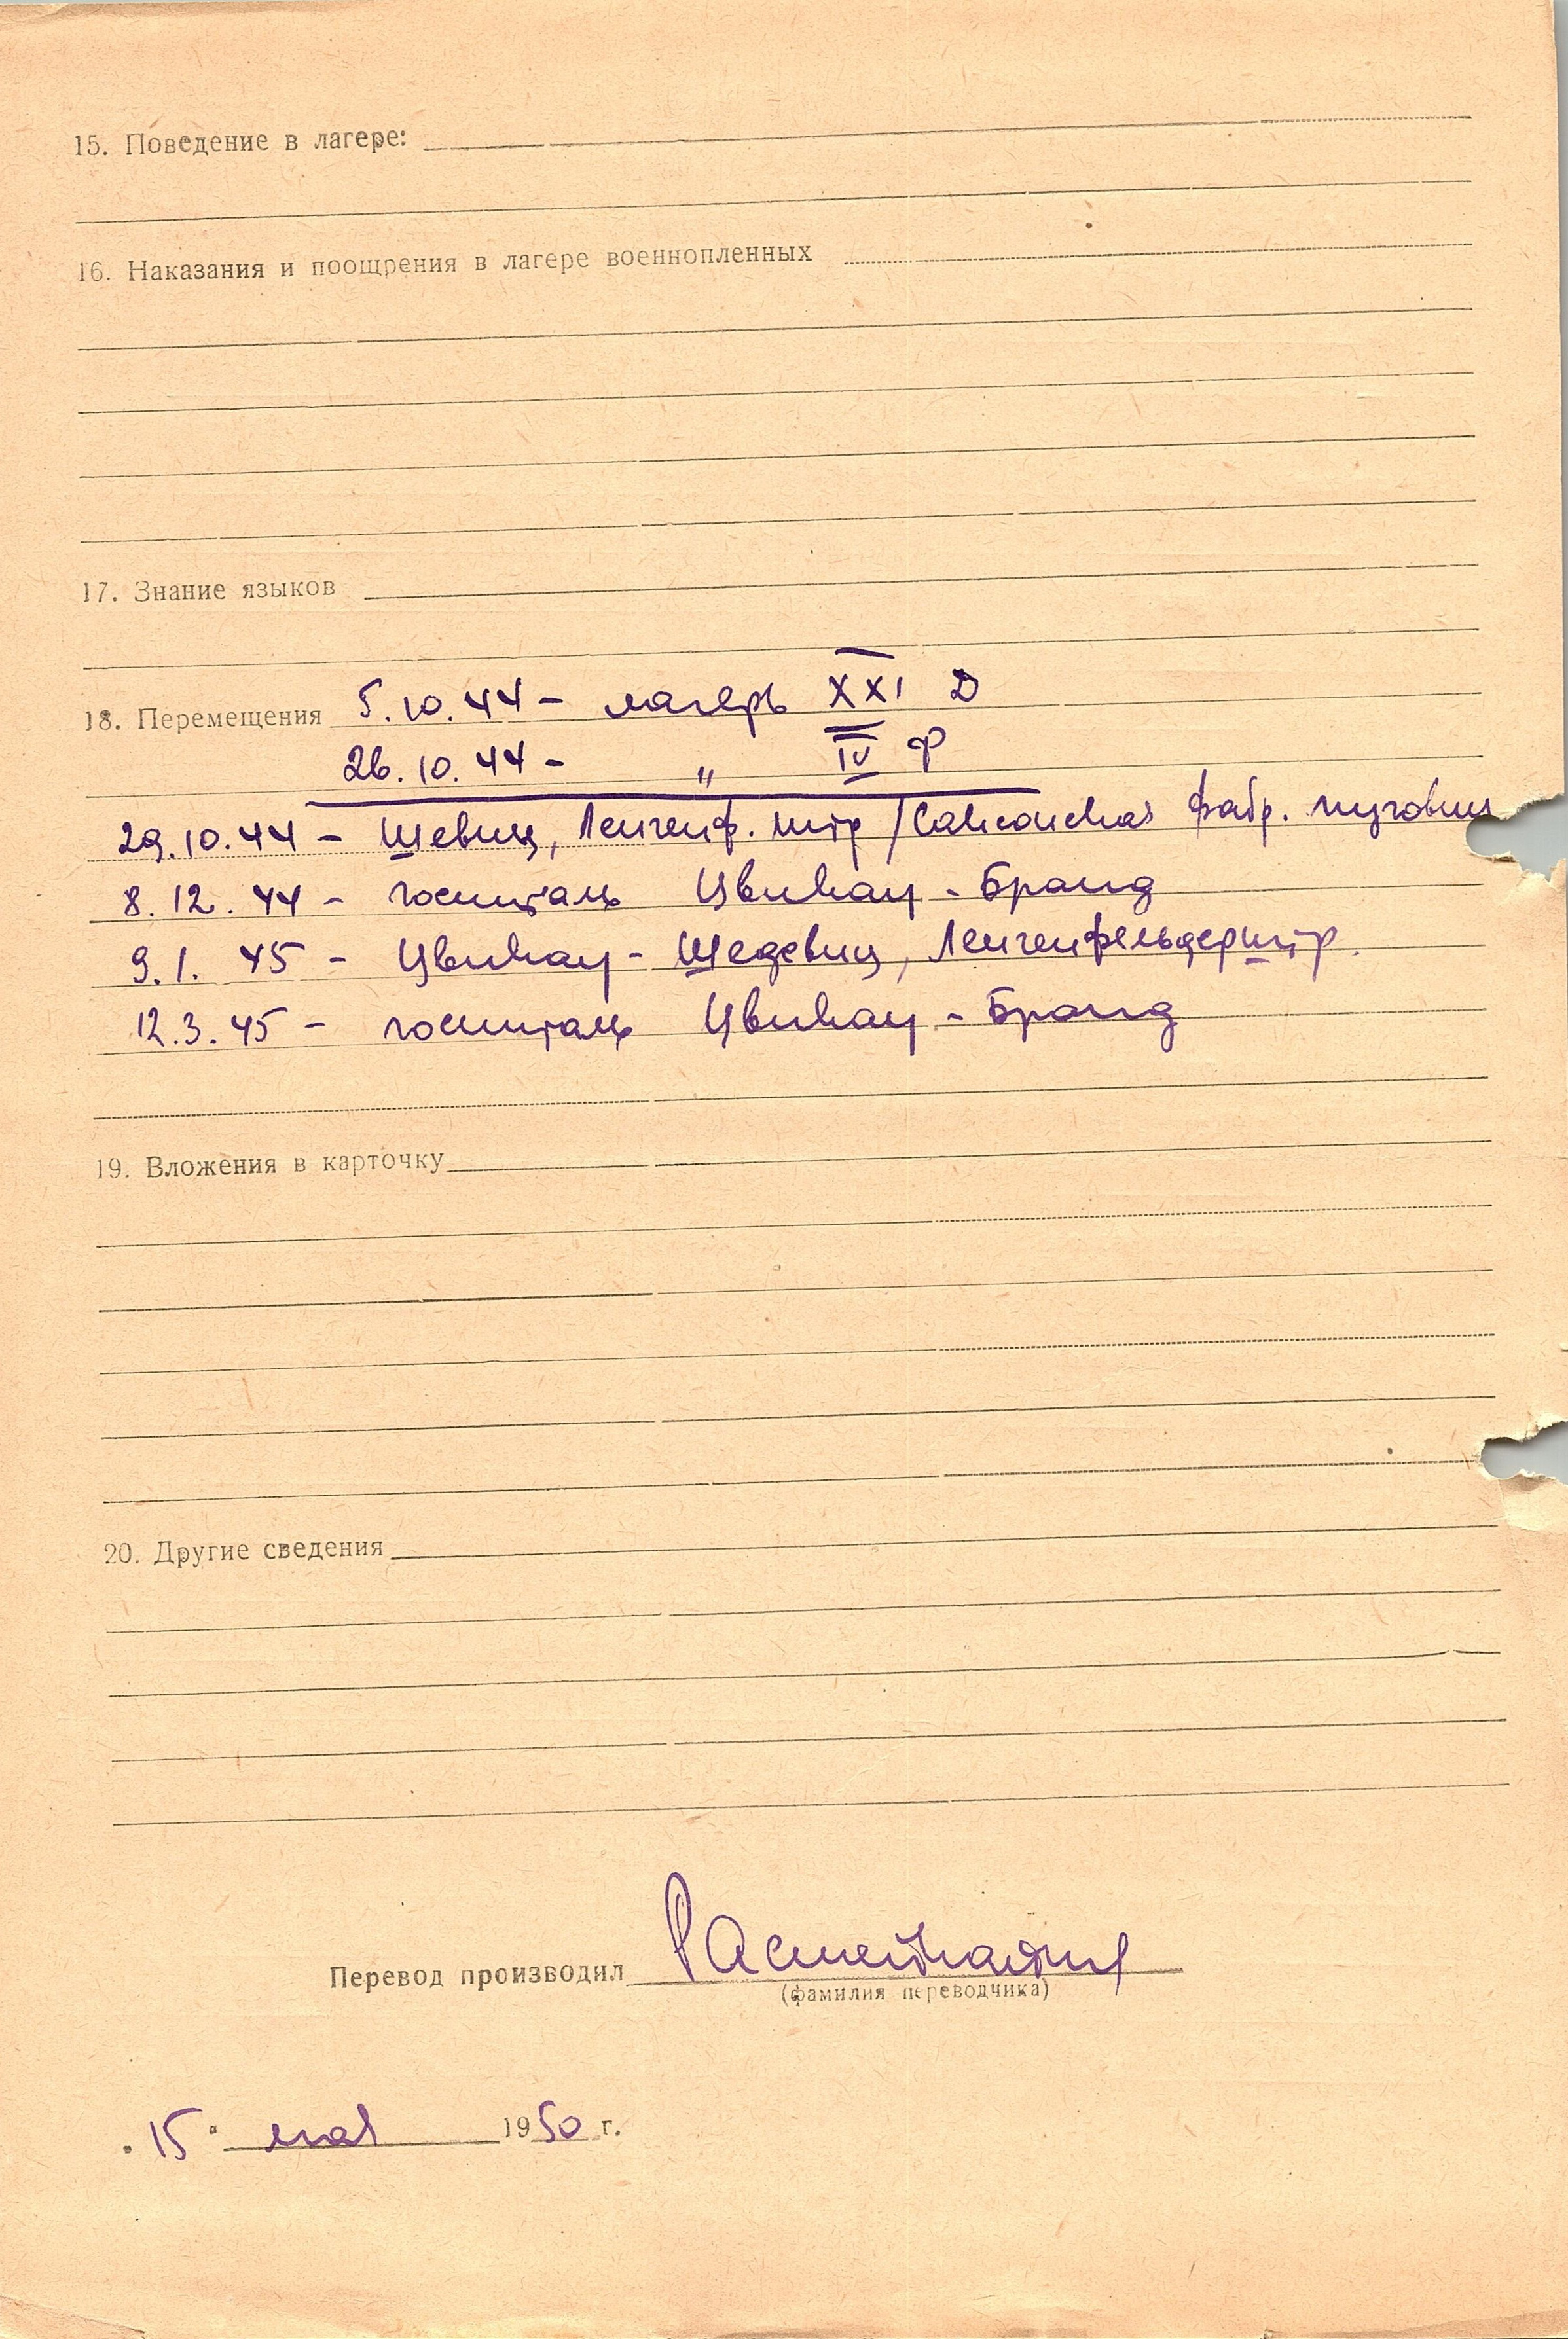 15. Поведение в лагере:
16. Наказания и поощрения в лагере военнопленных
17. Знание языков
18. Перемещения 5.10.44 - лагерь XXI Д
26.10.44 - " IV Ф
29.10.44 - Шевиц, Ленгенф. штр /Саксонская фабр. пуговиц
8.12.44 - госпиталь Цвикау - Бранд
9.1.45 - Цвикау - Шедевиц, Ленгенфельдерштр.
12.3.45 - госпиталь Цвикау - Бранд
19. Вложения в карточку
20. Другие сведения
Перевод производил
(фамилия переводчика)
"15" мая 1950 г.